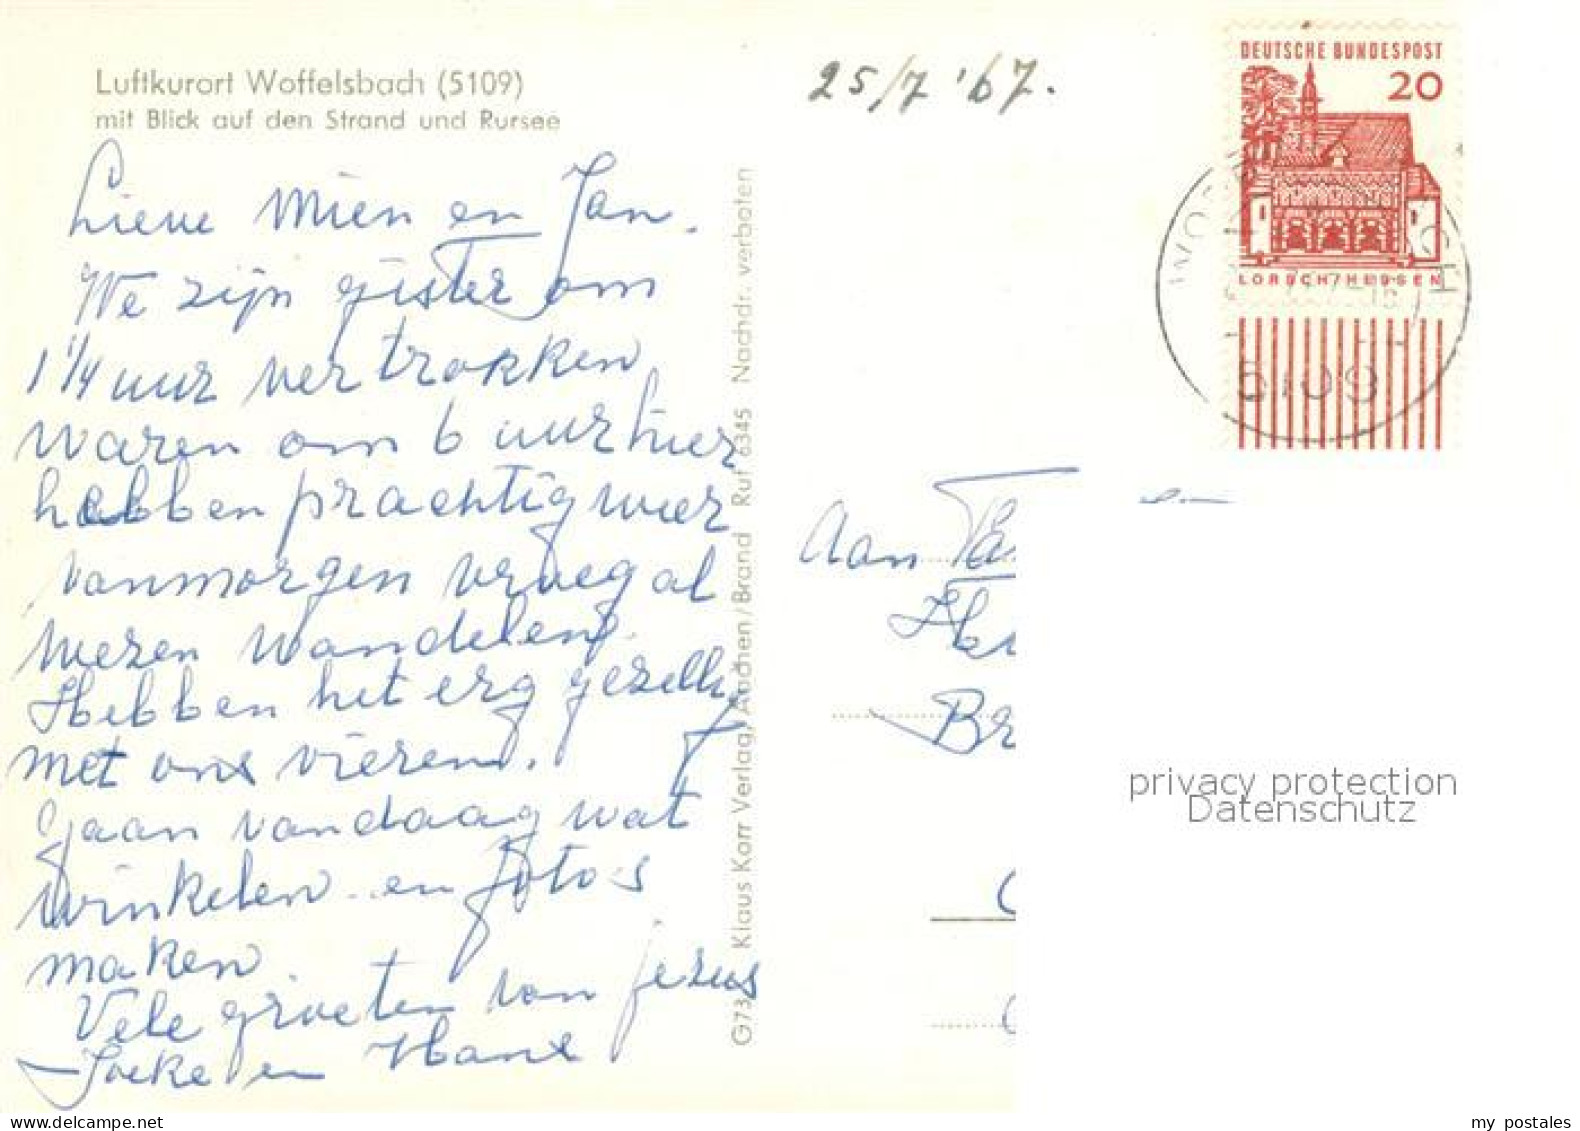 Luftkurort Woffelsbach (5109)
mit Blick auf den Strand und Rursee
Lieve Mien en Jan.
We zijn gister om
1 1/4 uur vertrokken
waren om 6 uur hier
hebben prachtig weer
vanmorgen vroeg al
wezen wandelen.
Hebben het erg gezellig
met ons vieren.
gaan vandaag wat
winkelen en foto's
maken.
Vele groeten van
en Hans
G73 Klaus Korr Verlag, Aachen/Brand Ruf 6345 Nachdr. verboten
25/7 '67.
DEUTSCHE BUNDESPOST
20
LORSCH/HESSEN
5109
Aan Fa
Br
privacy protection
Datenschutz
my postales